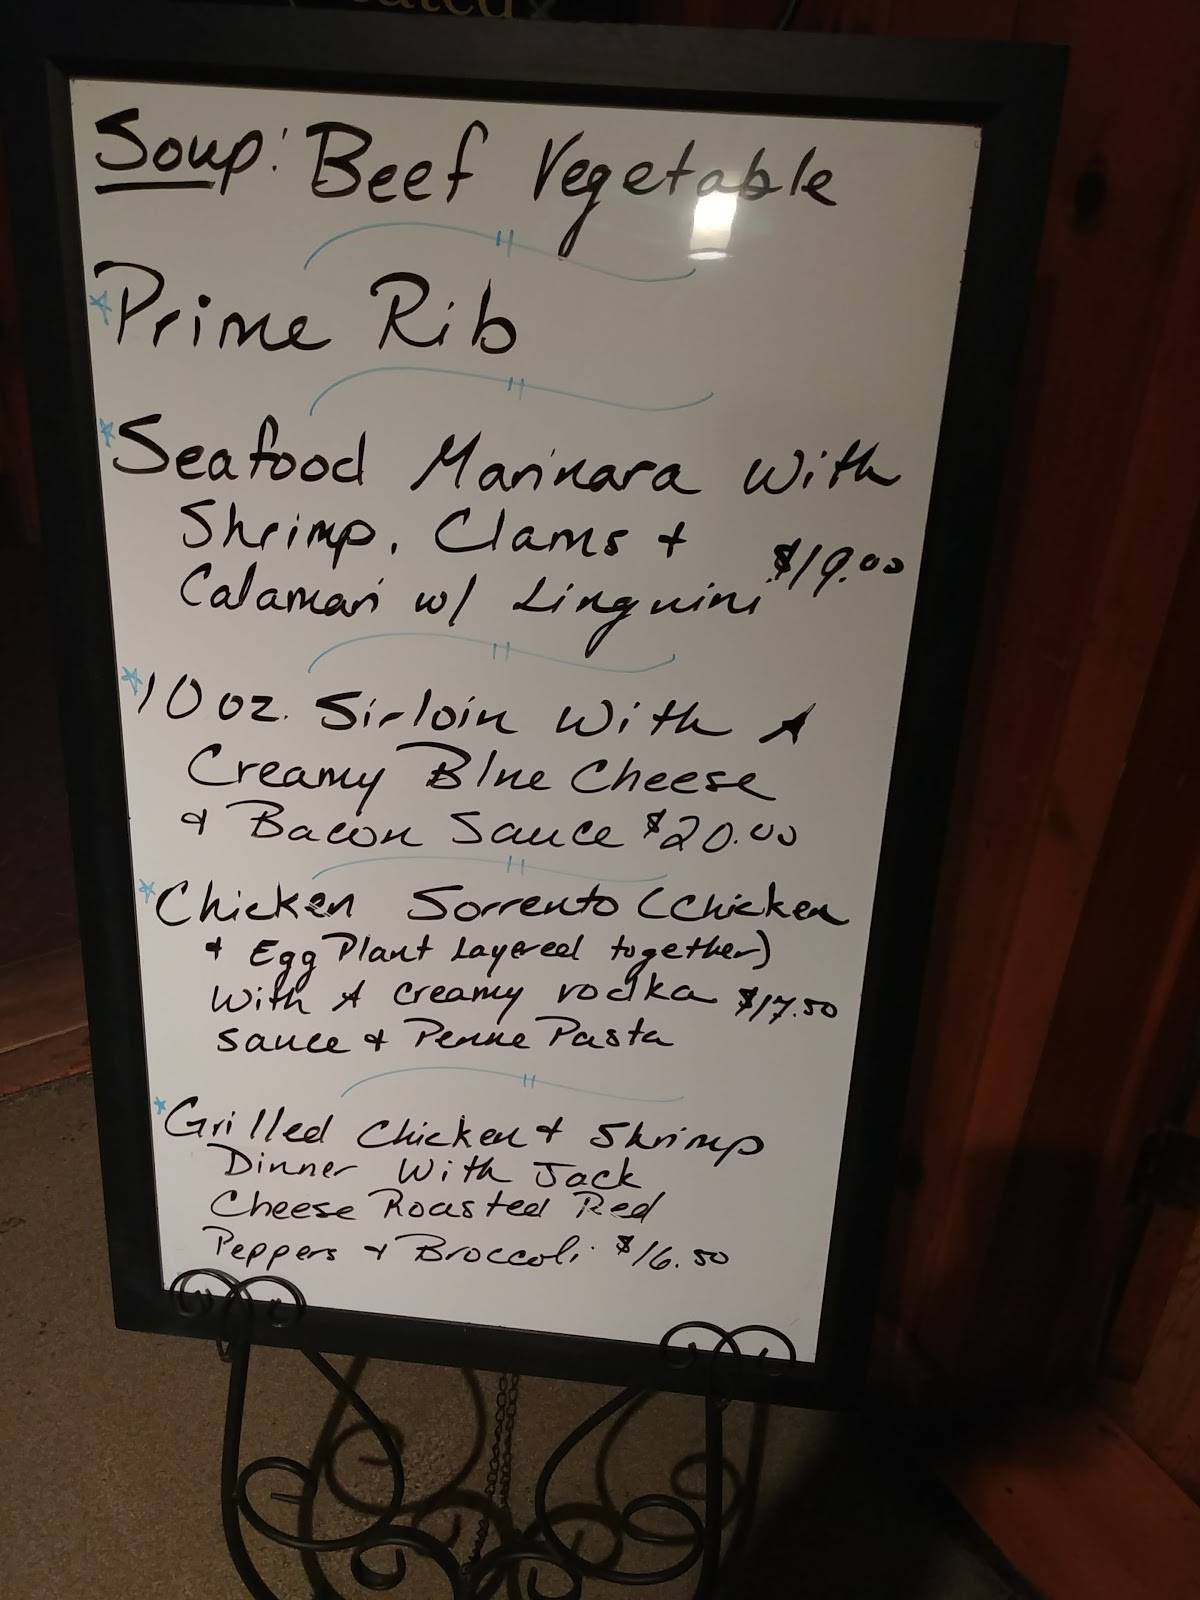 Soup: Beef Vegetable
*Prime Rib
*Seafood Marinara With
Shrimp, Clams +
Calamari w/ Linguini $19.00
*10 oz. Sirloin With A
Creamy Blue Cheese
& Bacon Sauce $20.00
*Chicken Sorrento (Chicken
+ Egg Plant Layered together)
With A creamy vodka $17.50
sauce + Penne Pasta
*Grilled Chicken + Shrimp
Dinner With Jack
Cheese Roasted Red
Peppers + Broccoli $16.50